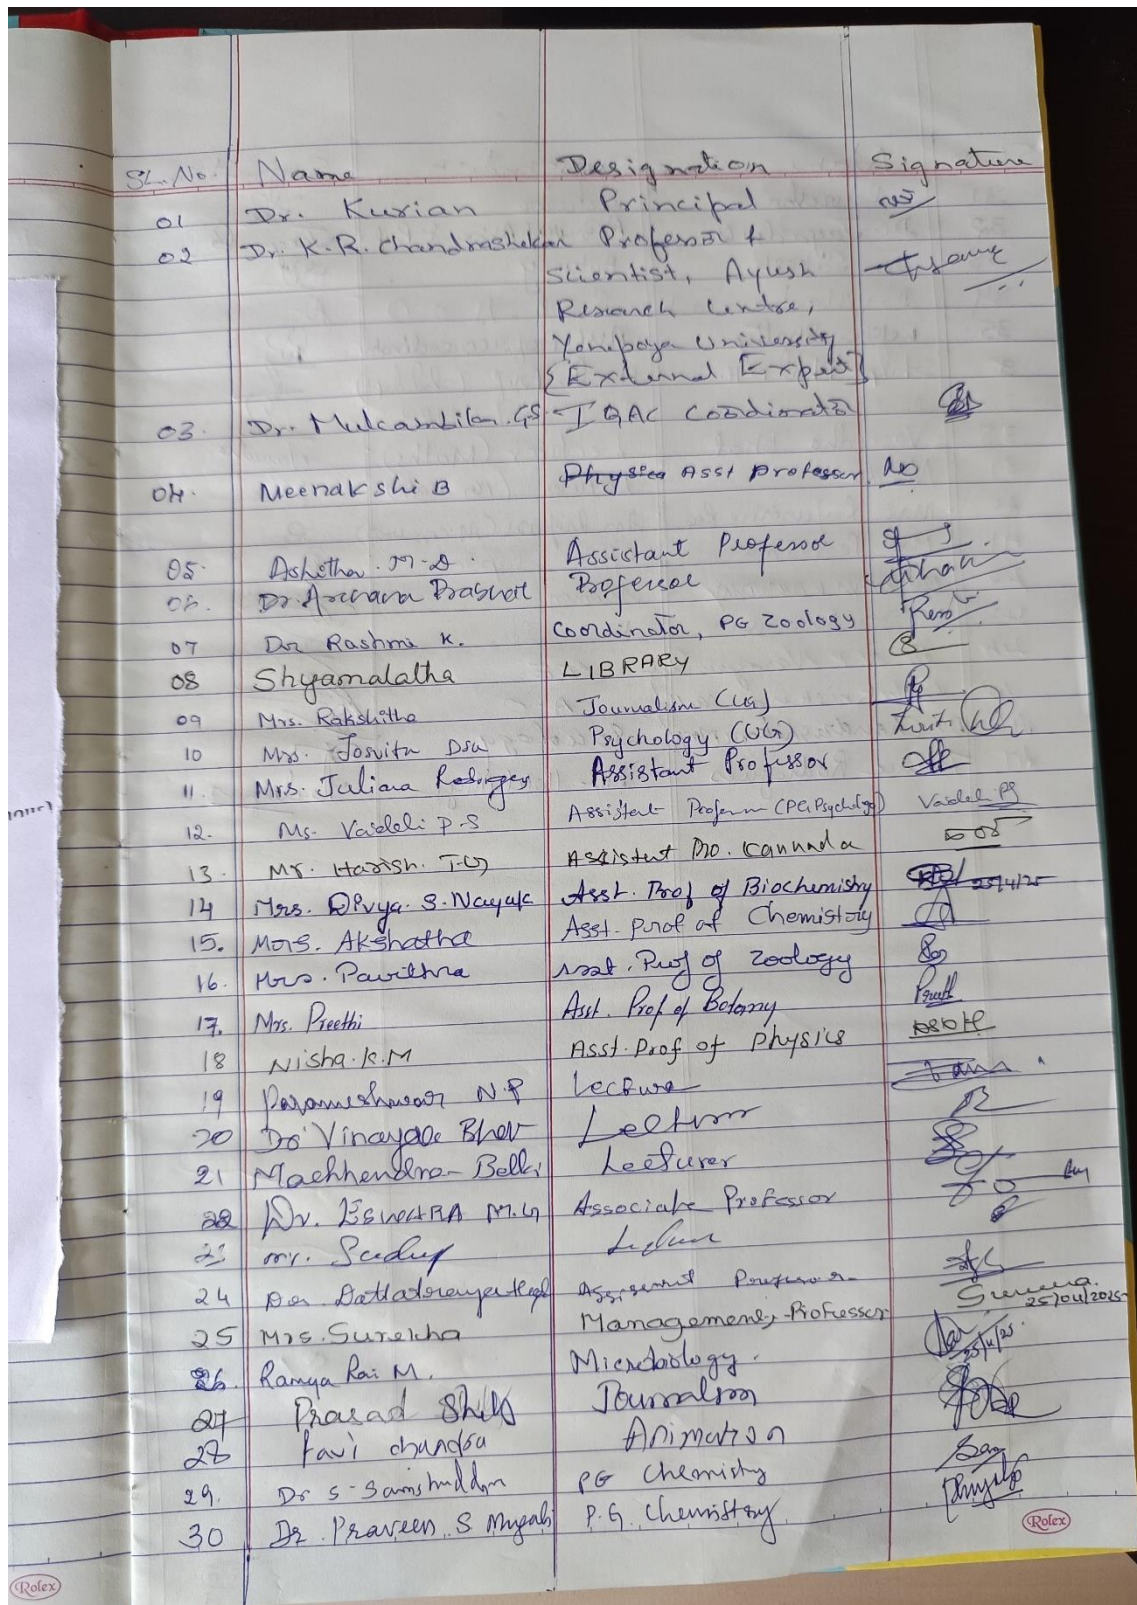 SL. No. Name Designation Signature
01 Dr. Kurian Principal
02 Dr. K.R. Chandrashekar Professor &
Scientist, Ayush
Research Centre,
Yenepoya University
[External Expert]
03. Dr. G.S. IQAC Coordinator
04. Meenakshi B Asst Professor
05. Ashitha M.D. Assistant Professor
06. Dr. Archana Prabhat Professor
07 Dr Rashmi K. Coordinator, PG Zoology
08 Shyamalatha LIBRARY
09 Mrs. Rakshitha Journalism (UG)
10 Mrs. Josvita Dsa Psychology (UG)
11 Mrs. Juliana Assistant Professor
12. Ms. Vaideli P.S Assistant Professor (PG Psychology) Vaideli PS
13. Mr. Harish. T.G Assistent Pro. Kannada
14 Mrs. Divya. S. Nayak Asst. Prof of Biochemistry 25/4/25
15. Mrs. Akshatha Asst. Prof of Chemistry
16. Mrs. Pavithra Asst. Prof of Zoology
17. Mrs. Preethi Asst. Prof of Botany
18 Nisha. K.M Asst. Prof of Physics
19 Parameshwar N.P Lecture
20 Dr Vinayak Bhat
21 Machhendra Lecturer
22 Dr. ESWARA M.G Associate Professor
23 Mr.
24 Dr. Dattatreya
25 Mrs. Surekha Management, Professor 25/04/2025
26. Ramya Rai M. Microbiology. 25/4/25
27 Prasad Journalism
28 Ravi Chandra Animation
29. Dr S. Samshuddin PG Chemistry
30 Dr. Praveen S Mugali P.G. Chemistry
Rolex
Rolex